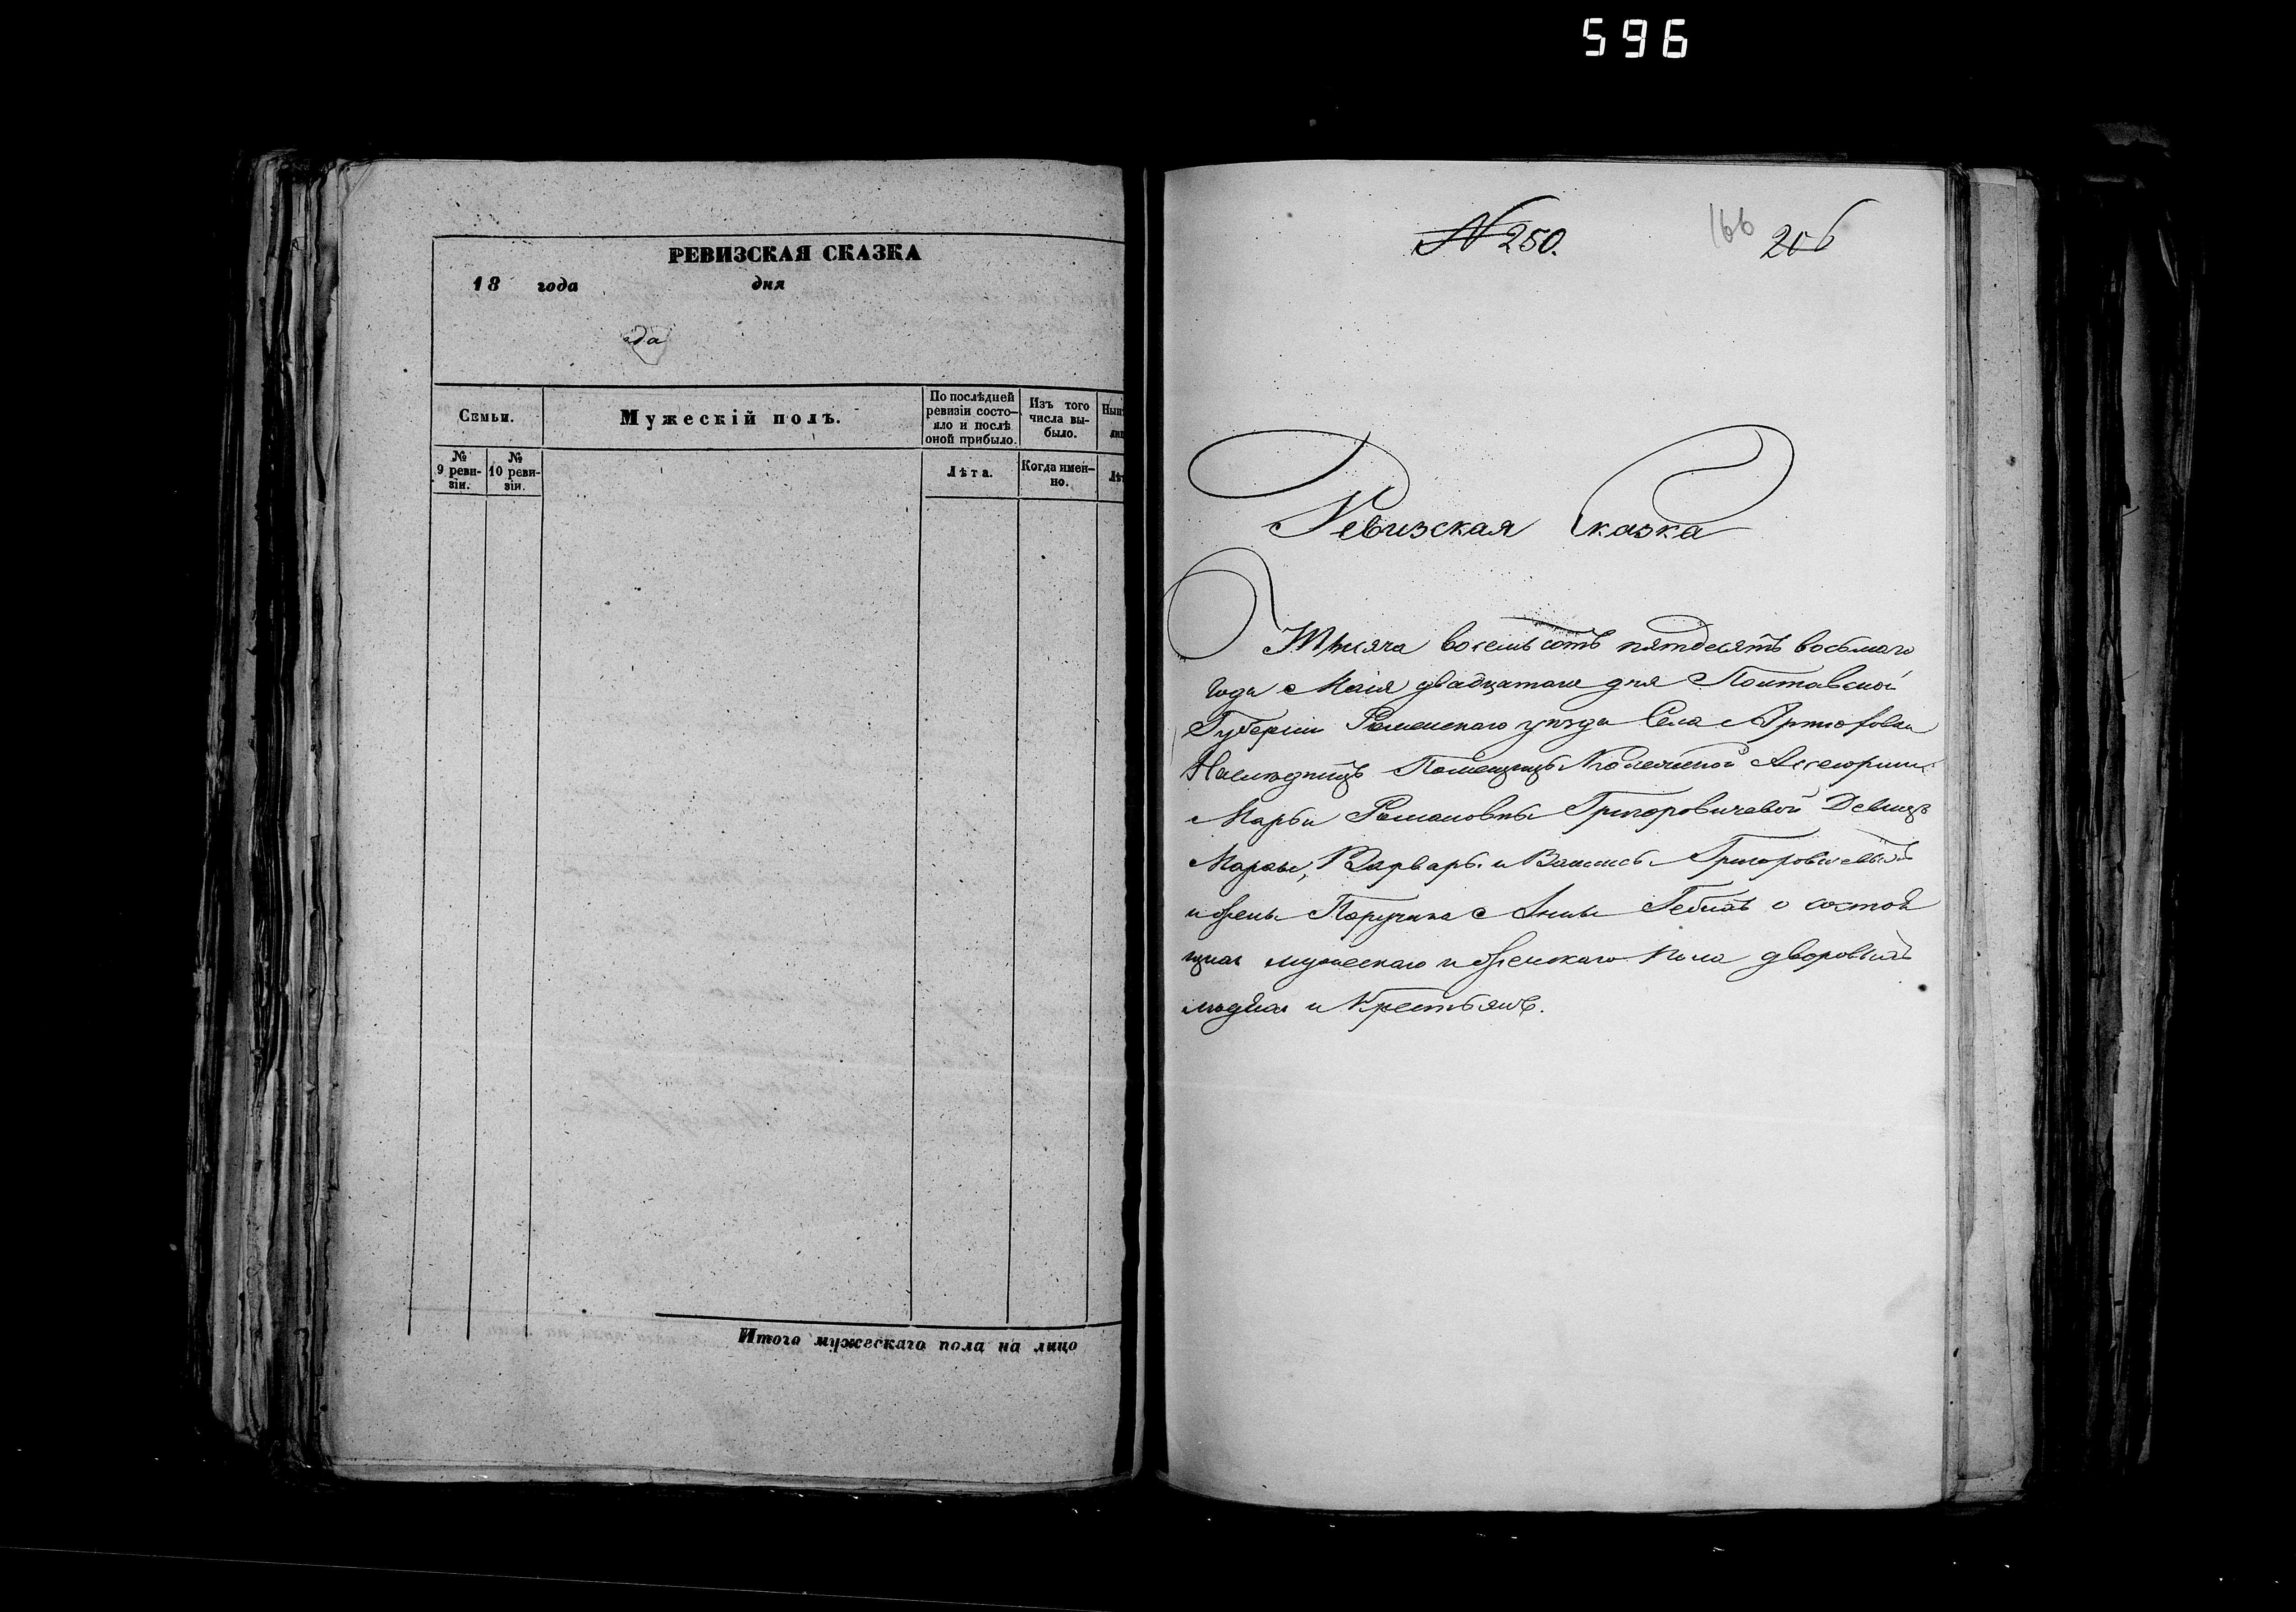 596
РЕВИЗСКАЯ СКАЗКА
18 года дня
да
Семьи.
Мужескій полъ.
По послѣдней ревизіи состо-
яло и послѣ
оной прибыло.
Изъ того
числа вы-
было.
№
9 реви-
зіи.
№
10 реви-
зіи.
Лѣта.
Когда имен-
но.
Итого мужескаго пола на лицо
№ 250.
166 206
Ревизская Сказка
Тысяча восемьсотъ пятдесятъ восьмаго
года Маія двадцатаго дня Полтавской
Губерніи Роменскаго уѣзда Села Артюховки
Наслѣдницъ Помещицы Колежской Ассесорши
Марьи Романовны Григоровичавой Девицъ
Марьи, Варвары и Григоровичевыхъ
и жены Поручика Анны о состоя
щихъ мужескаго и женскаго пола дворовыхъ
людяхъ и Крестьянъ.